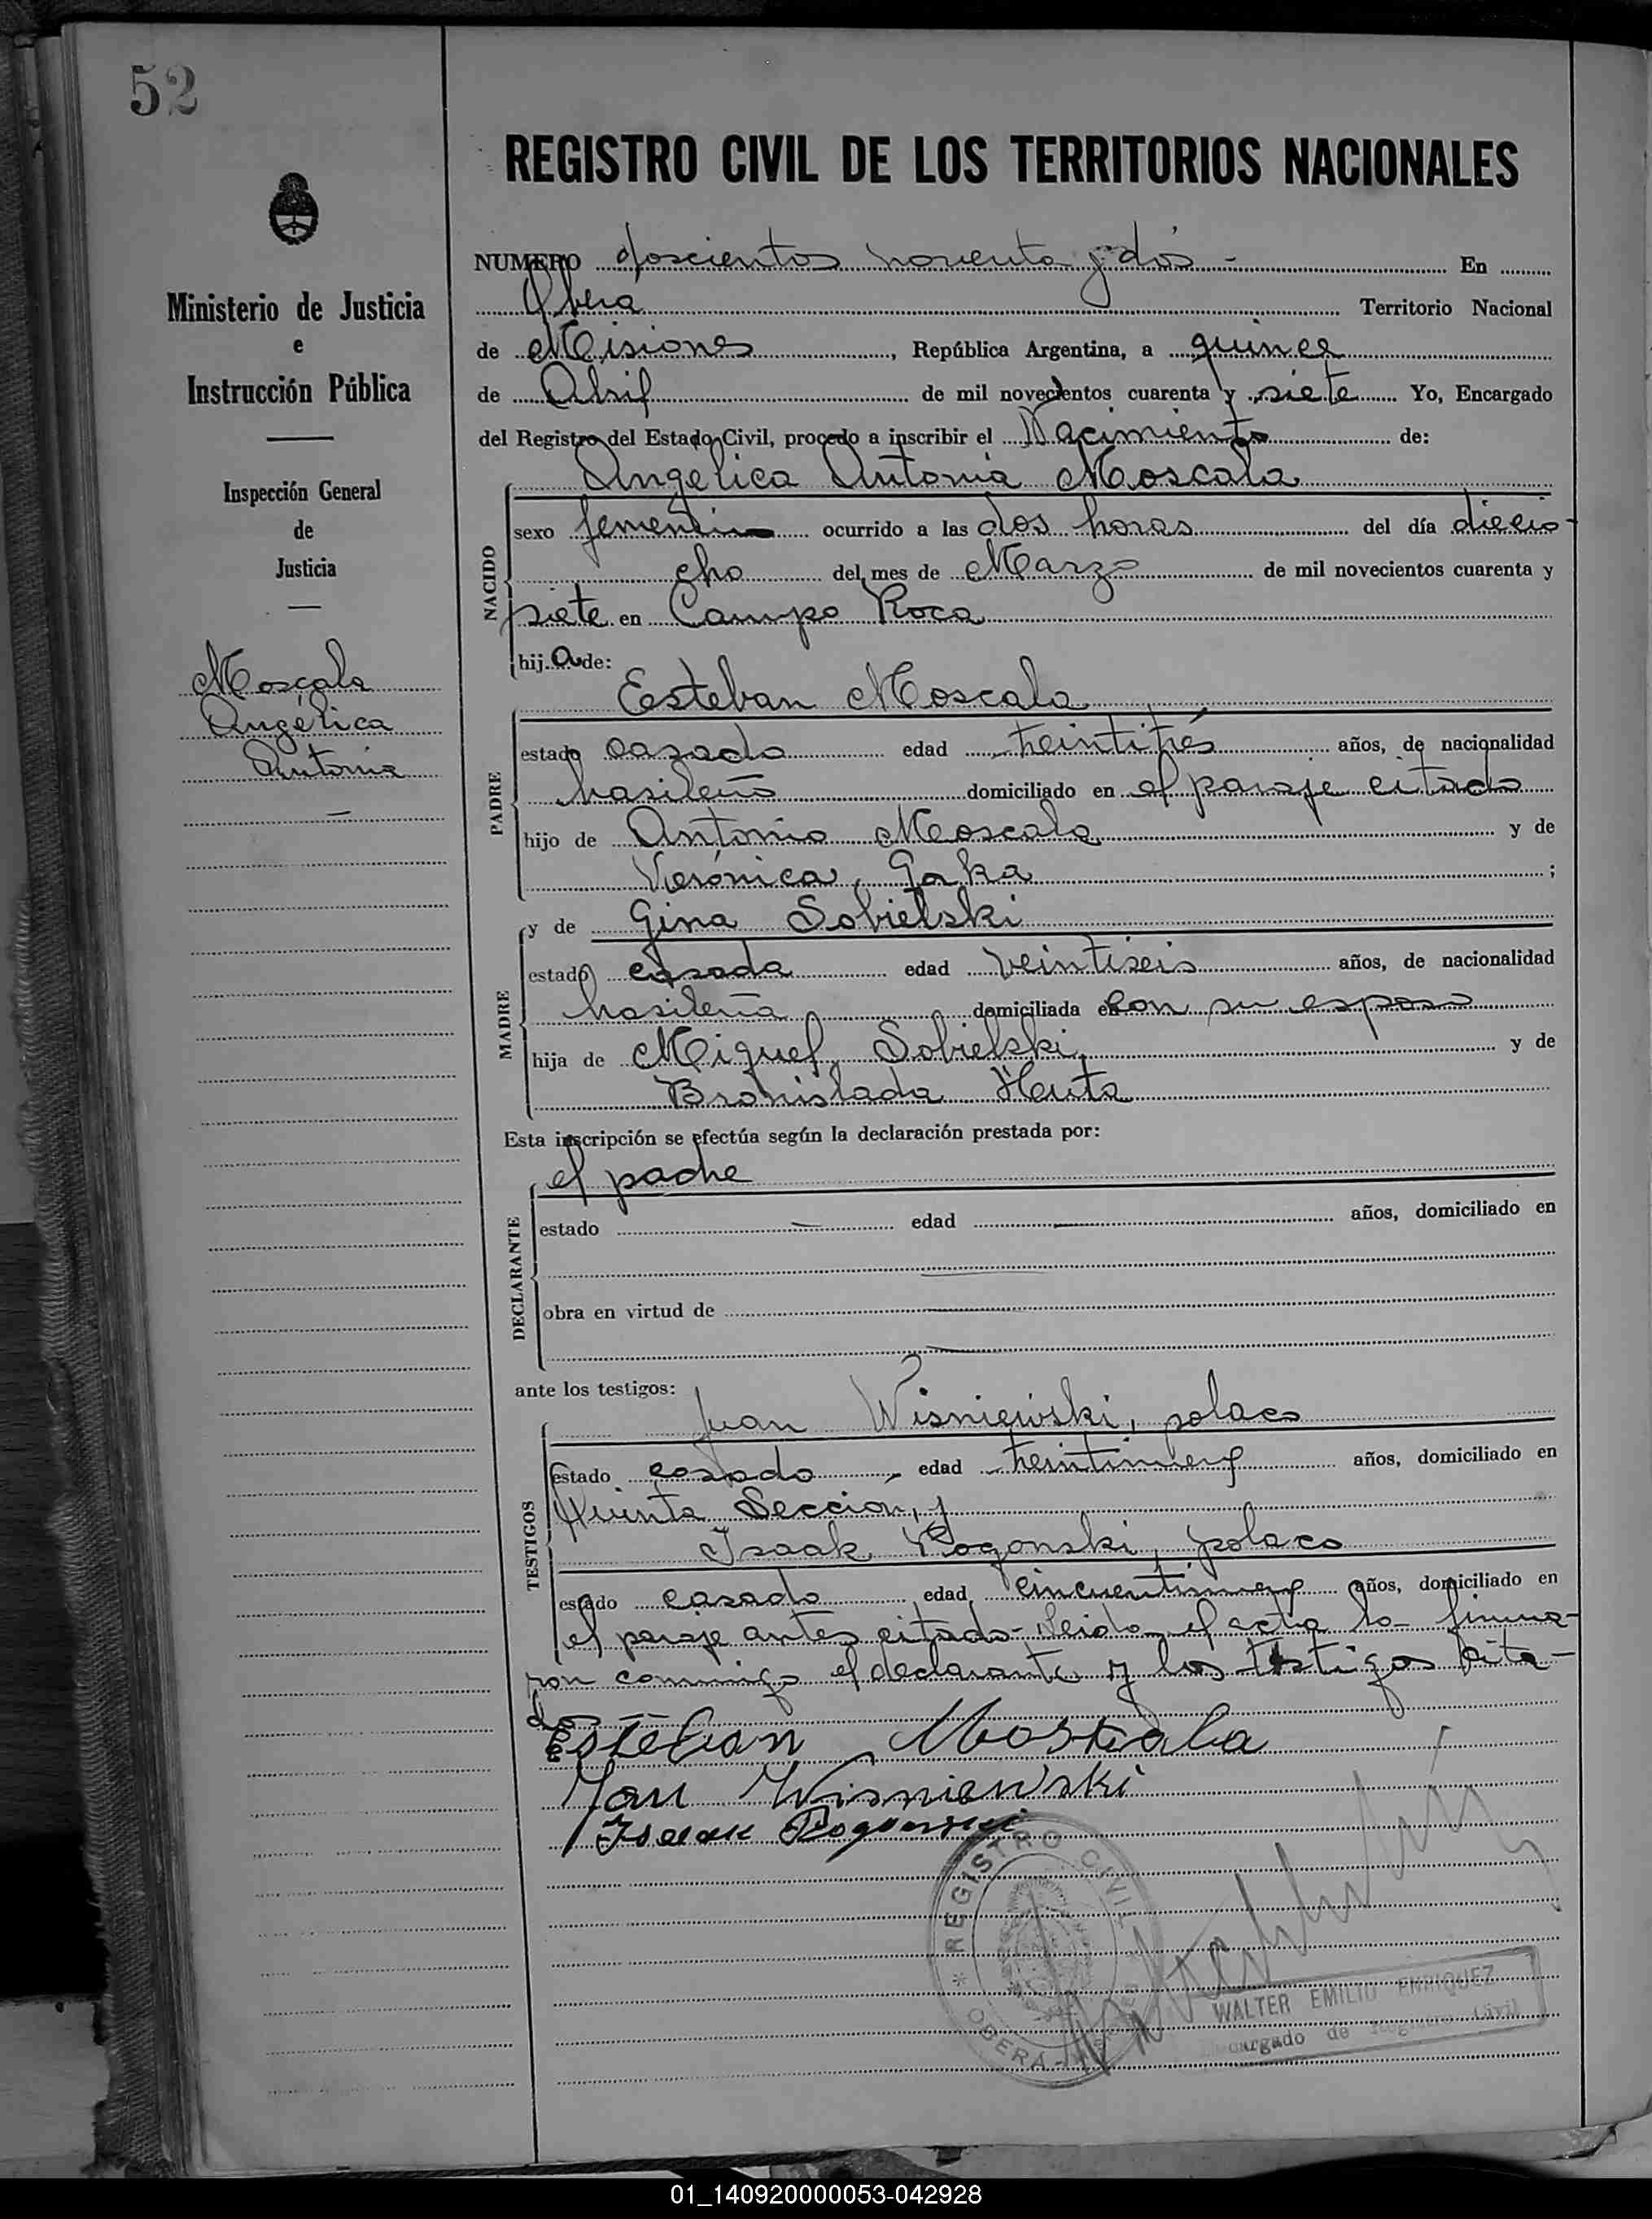 52
REGISTRO CIVIL DE LOS TERRITORIOS NACIONALES
Ministerio de Justicia
e
Instrucción Pública
Inspección General
de
Justicia
Moscala
Angélica
Antonia
NUMERO doscientos noventa y dos - En
Oberá Territorio Nacional
de Misiones, República Argentina, a quince
de Abril de mil novecientos cuarenta y siete Yo, Encargado
del Registro del Estado Civil, procedo a inscribir el Nacimiento de:
Angélica Antonia Moscala
NACIDO
sexo femenino ocurrido a las dos horas del día diecio-
cho del mes de Marzo de mil novecientos cuarenta y
siete en Campo Roca
hij a de:
Esteban Moscala
PADRE
estado casado edad treintitrés años, de nacionalidad
brasileño domiciliado en el paraje citado
hijo de Antonio Moscala y de
Verónica Gorka ;
y de Gina Sobielski
MADRE
estado casada edad veintiseis años, de nacionalidad
brasileña domiciliada con su esposo
hija de Miguel Sobielski y de
Bronislada Heuta
Esta inscripción se efectúa según la declaración prestada por:
el padre
DECLARANTE
estado — edad — años, domiciliado en
obra en virtud de
ante los testigos:
Juan Wisniewski, polaco
TESTIGOS
estado casado, edad treintinueve años, domiciliado en
Quinta Sección, y
Isaak Rogonski, polaco
estado casado edad cincuentinueve años, domiciliado en
el paraje antes citado- Leido el acta la firma-
ron conmigo el declarante y los testigos cita-
dos
Esteban Moskala
Jan Wisniewski
Isaak
REGISTRO CIVIL
OBERÁ
WALTER EMILIO ENRIQUEZ
Encargado de Registro Civil
01_140920000053-042928